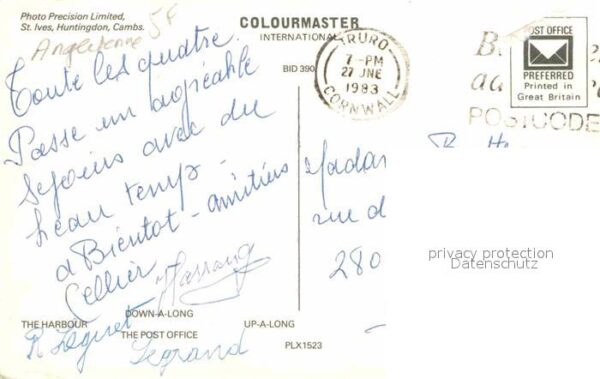 Photo Precision Limited,
St. Ives, Huntingdon, Cambs.
5F
Angleterre
COLOURMASTER
INTERNATIONAL
BID 390
TRURO
7-PM
27 JNE
1983
CORNWALL
POST OFFICE
PREFERRED
Printed in
Great Britain
POSTCODE
Toute les quatre.
Passe un agréable
Sejours avec du
beau temps -
a Bientot - amitiés
Cellier
Legrand
rue d
280
privacy protection
Datenschutz
DOWN-A-LONG
THE HARBOUR
UP-A-LONG
THE POST OFFICE
PLX1523